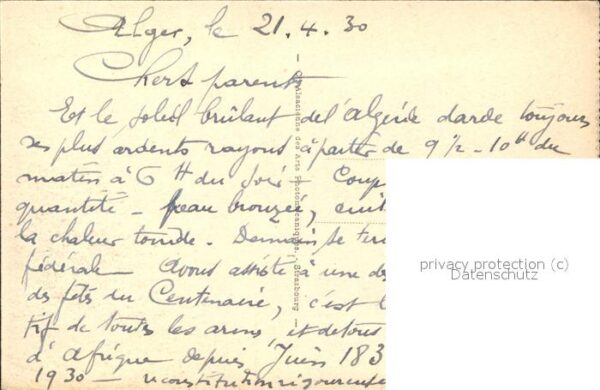 Alger, le 21.4.30
Chers parents
Et le soleil brûlant de l'Algérie darde toujours
ses plus ardents rayons à partir de 9 1/2 - 10 H du
matin à 6 H du soir - Coup
quantité - peau bronzée,
la chaleur torride. Demain se
fédérale - Avons assisté à une de
des fêtes du Centenaire, c'est l
tif de toutes les armes et de tous
d'Afrique depuis Juin 183
1930 - reconstitution rigoureuse
privacy protection (c)
Datenschutz
Alsacienne des Arts Photomécaniques - Strasbourg